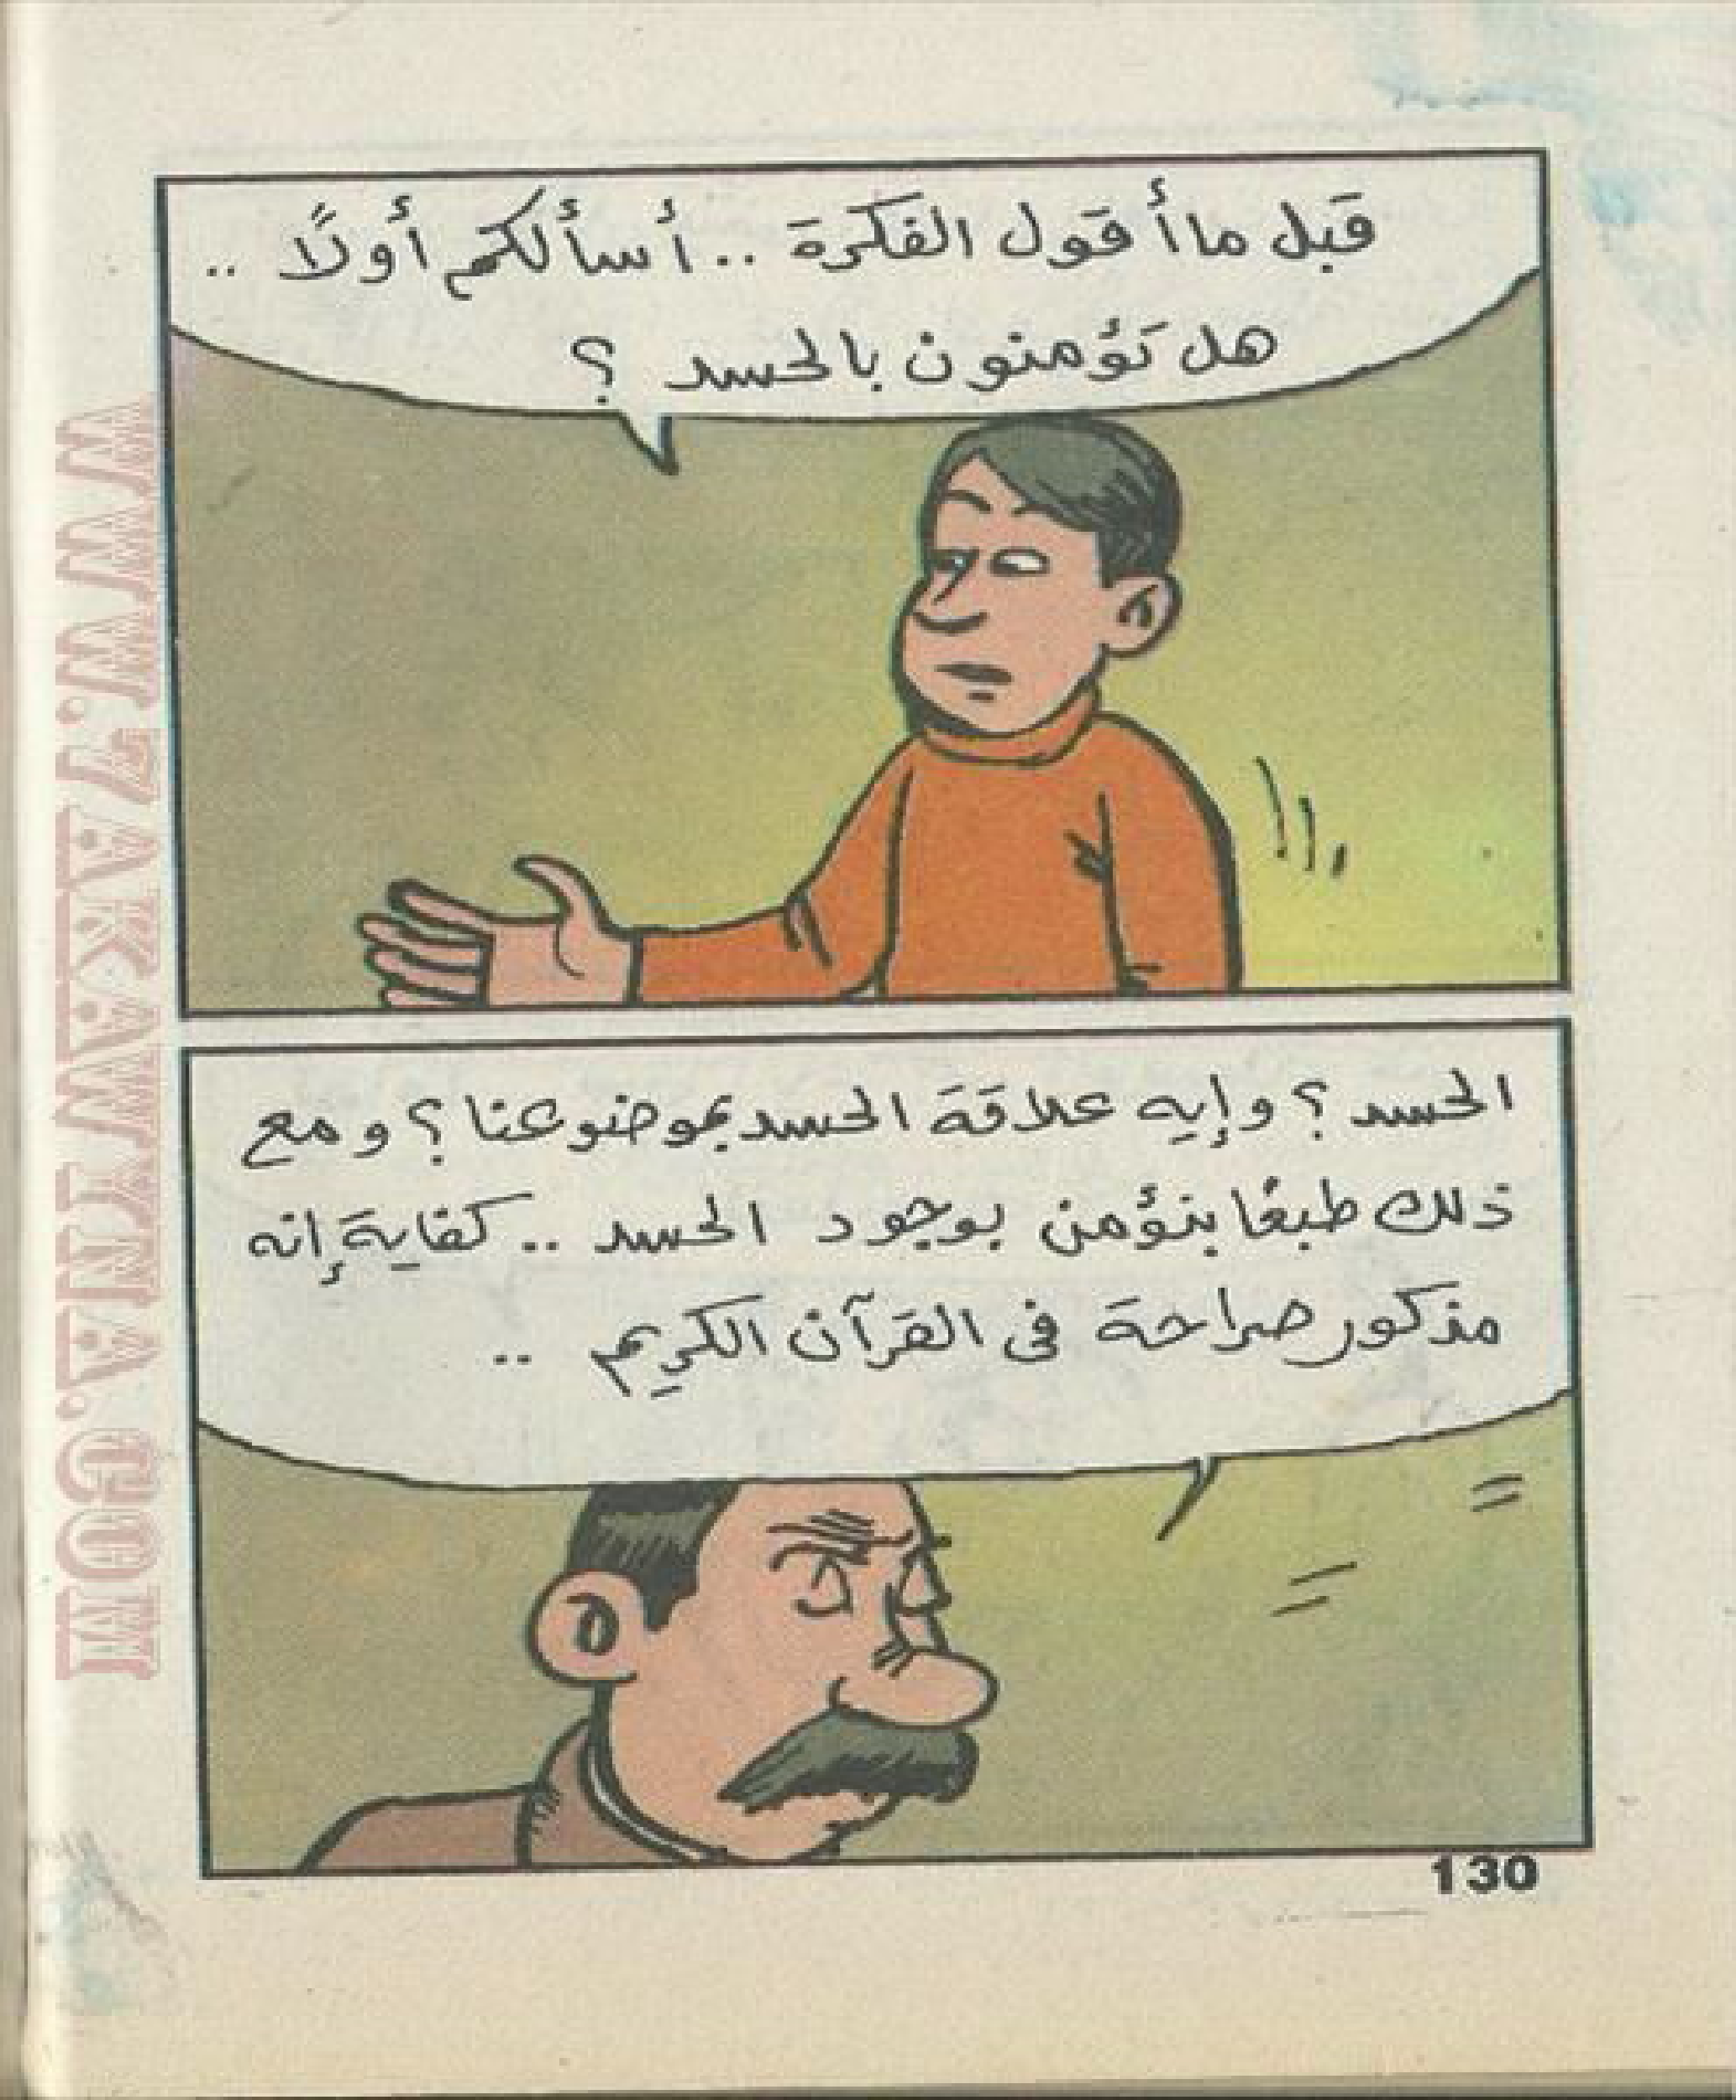 قبل ما أقول الفكرة .. أسألكم أولًا ..
هل تؤمنون بالحسد ؟
الحسد ؟ وإيه علاقة الحسد بموضوعنا ؟ ومع
ذلك طبعًا بنؤمن بوجود الحسد .. كفاية إنه
مذكور صراحة فى القرآن الكريم ..
130
WWW.7AKAWYNA.COM